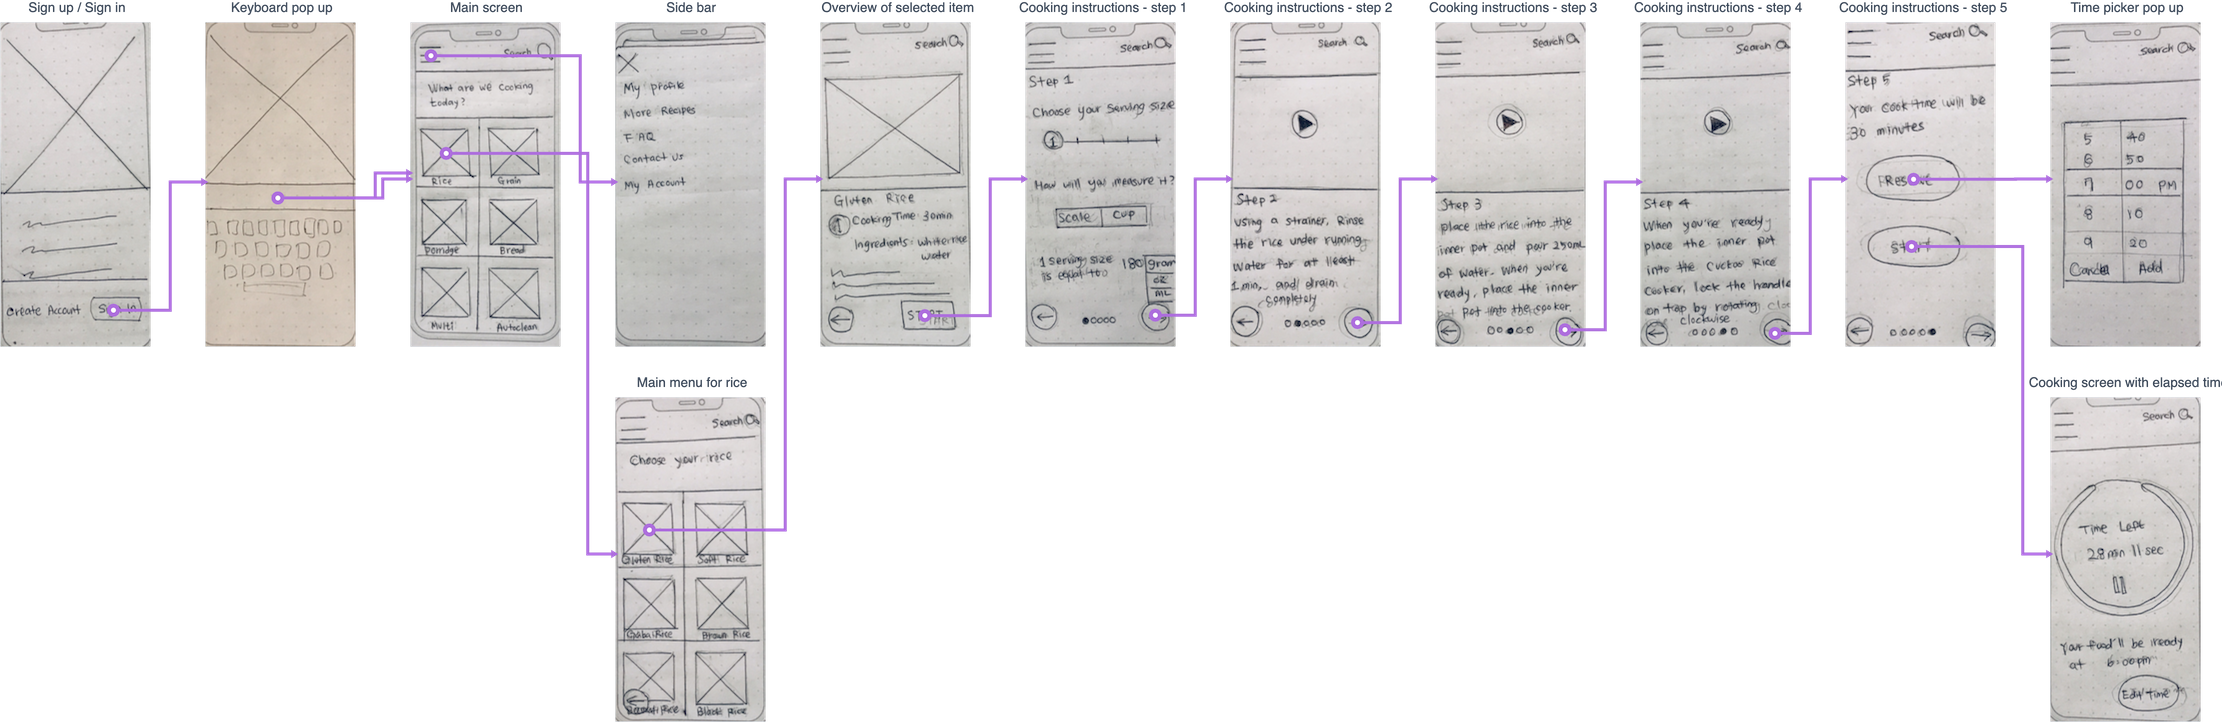 Sign up / Sign in
Create Account
Sign In
Keyboard pop up
Main screen
Search
What are we cooking
today?
Rice
Grain
Porridge
Bread
Multi
Autoclean
Side bar
My profile
More Recipes
FAQ
Contact Us
My Account
Main menu for rice
Search
Choose your rice
Gluten Rice
Soft Rice
Gaba Rice
Brown Rice
Rice
Black Rice
Overview of selected item
Search
Gluten Rice
Cooking Time: 30min
Ingredients: white rice
water
START
Cooking instructions - step 1
Search
Step 1
Choose your serving size
1
How will you measure it?
Scale
Cup
1 serving size
is equal to
180
gram
oz
ML
Cooking instructions - step 2
Search
Step 2
Using a strainer, Rinse
the rice under running
water for at least
1 min, and drain
completely
Cooking instructions - step 3
Search
Step 3
place the rice into the
inner pot and pour 250mL
of water. When you're
ready, place the inner
pot into the cooker.
Cooking instructions - step 4
Search
Step 4
When you're ready
place the inner pot
into the Cuckoo Rice
Cooker, lock the handle
on top by rotating
clockwise
Cooking instructions - step 5
Search
Step 5
Your cook time will be
30 minutes
START
Time picker pop up
Search
5 40
6 50
7 00 PM
8 10
9 20
Cancel Add
Cooking screen with elapsed time
Search
Time Left
28 min 11 sec
Your food'll be ready
at 6:00pm
Edit Time